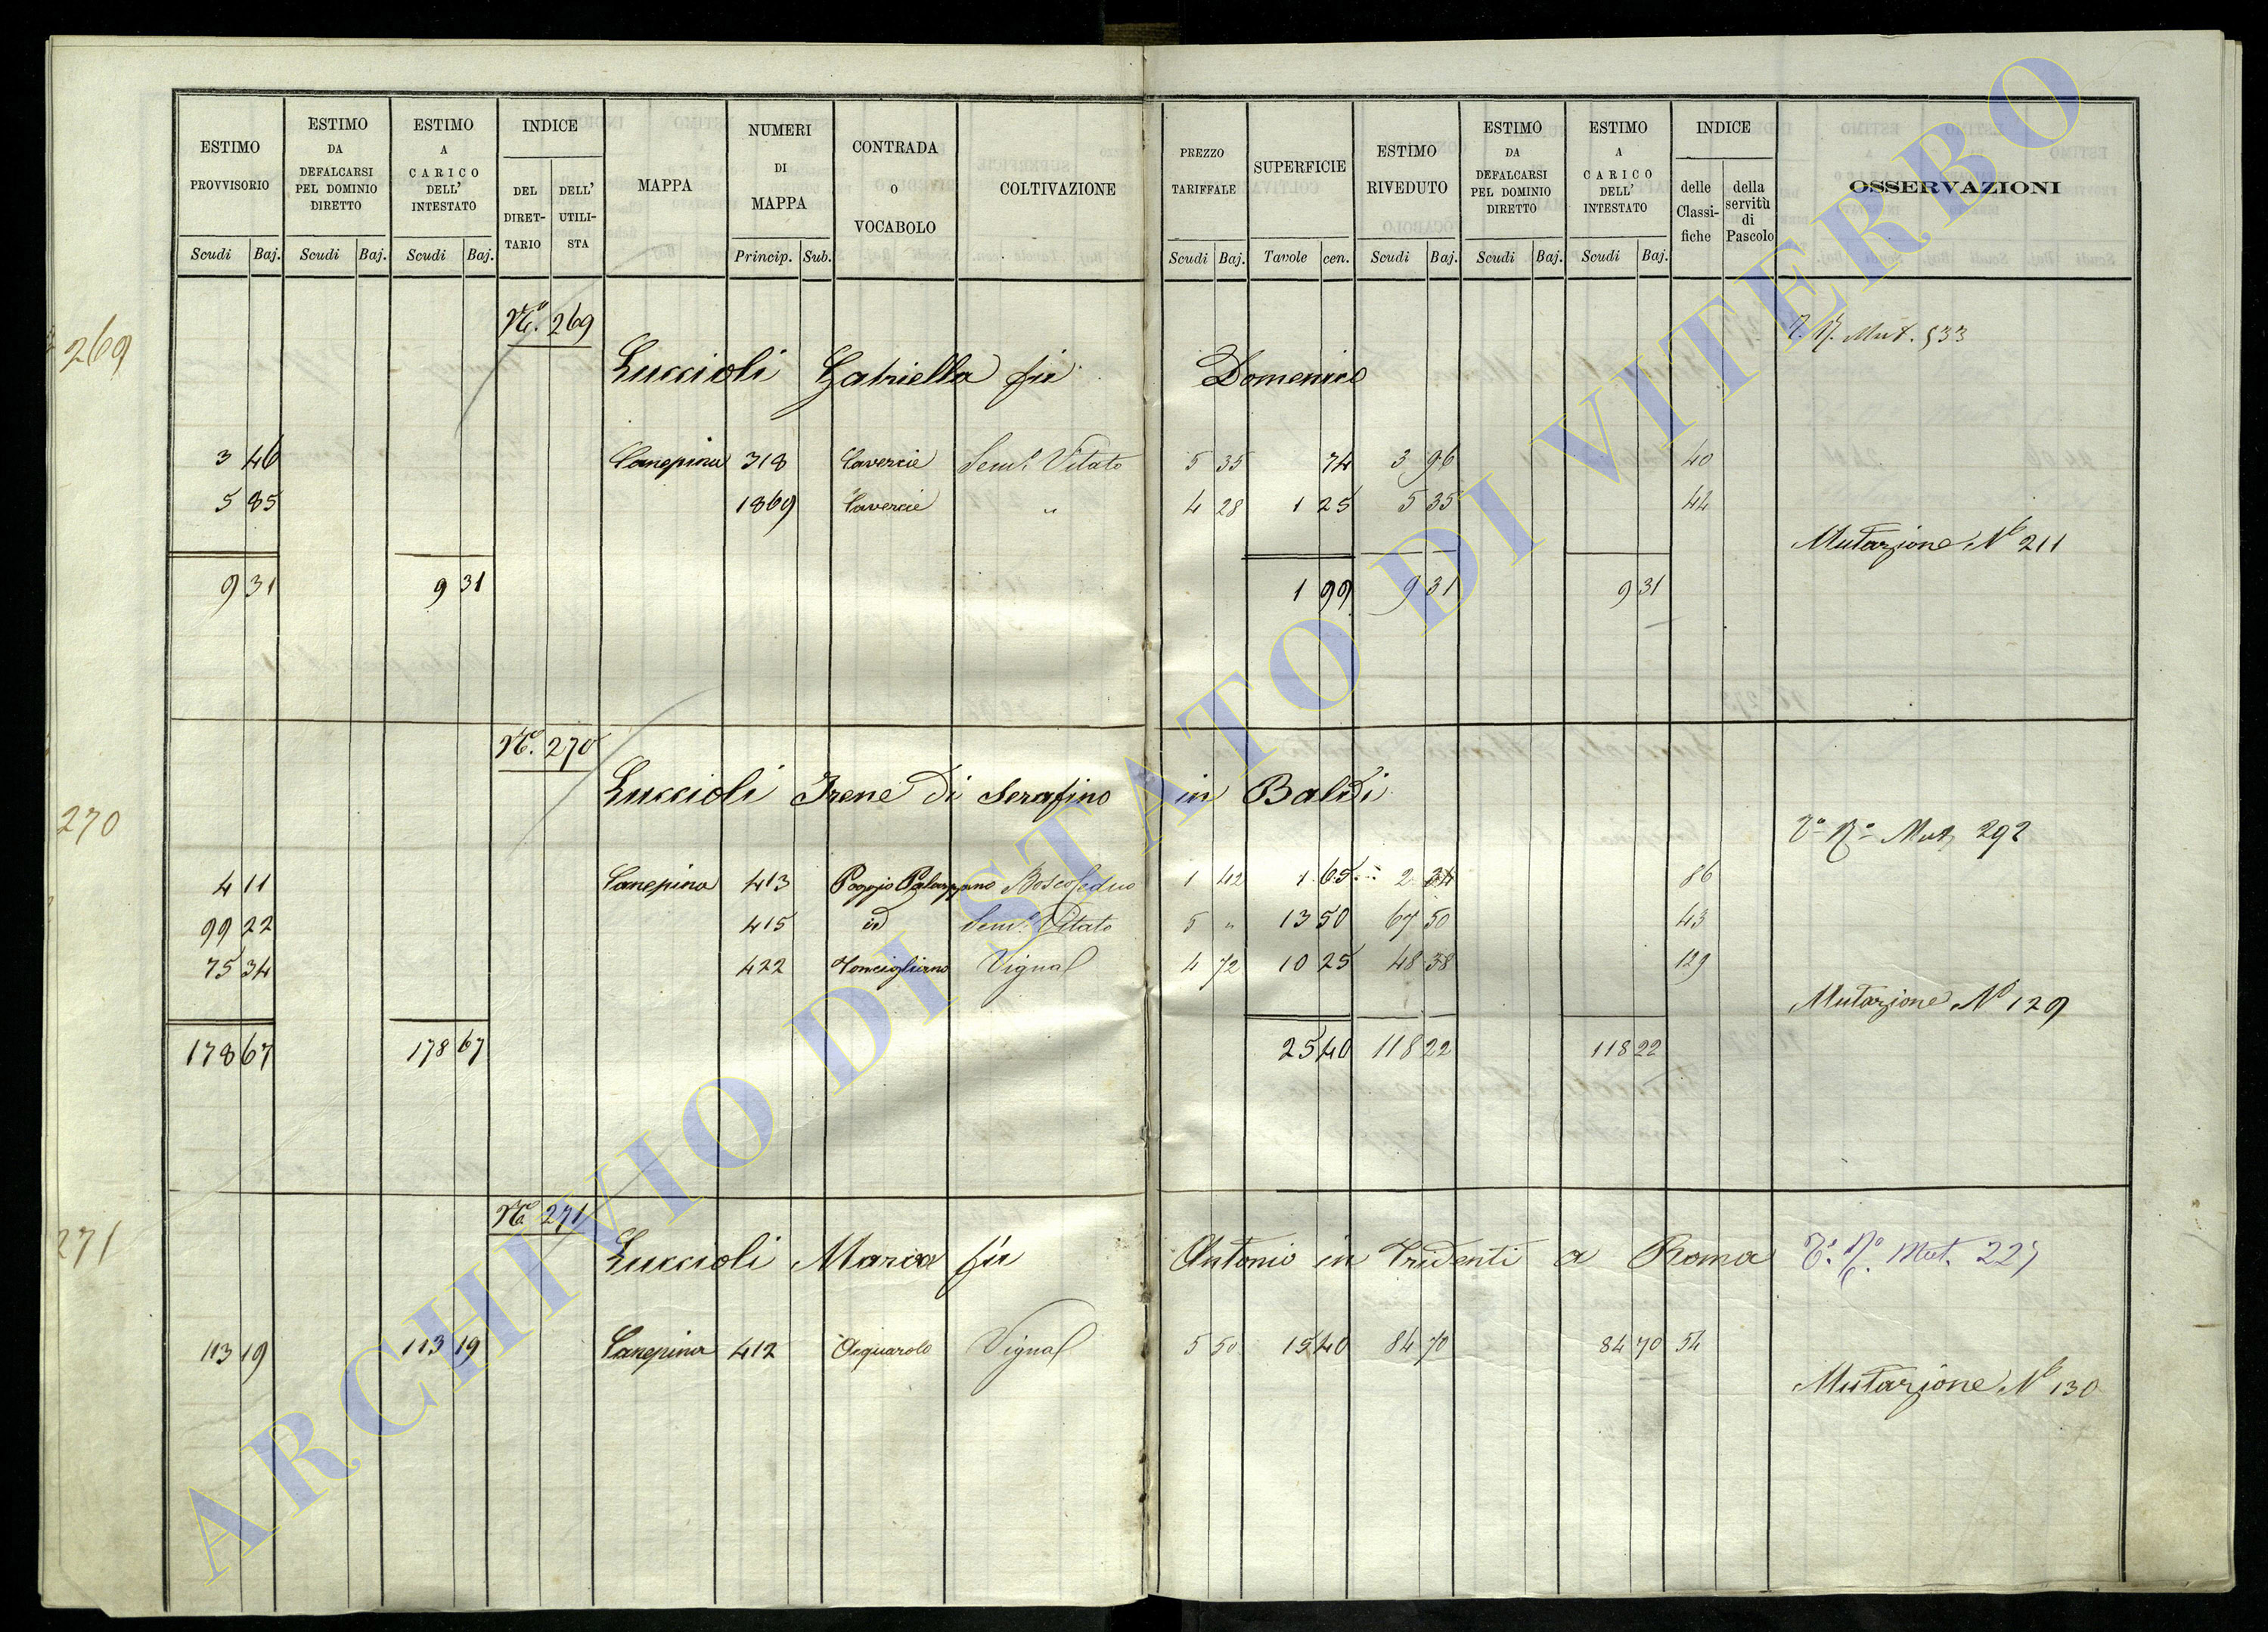 ESTIMO PROVVISORIO Scudi Baj.
ESTIMO DA DEFALCARSI PEL DOMINIO DIRETTO Scudi Baj.
ESTIMO A CARICO DELL' INTESTATO Scudi Baj.
INDICE DEL DIRET- TARIO DELL' UTILI- STA
MAPPA
NUMERI DI MAPPA Princip. Sub.
CONTRADA O VOCABOLO
COLTIVAZIONE
PREZZO TARIFFALE Scudi Baj.
SUPERFICIE Tavole cen.
ESTIMO RIVEDUTO Scudi Baj.
ESTIMO DA DEFALCARSI PEL DOMINIO DIRETTO Scudi Baj.
ESTIMO A CARICO DELL' INTESTATO Scudi Baj.
INDICE delle Classi- fiche della servitù di Pascolo
OSSERVAZIONI
269
No. 269
Luccioli Gabriella fu Domenico
Mut. 533
3 46 Canepina 318 Cavercie Sem.o Vitato 5 35 74 3 96 40
5 85 1869 Cavercie " 4 28 1 25 5 35 42
Mutazione No 211
9 31 9 31 1 99 9 31 9 31
270
No. 270
Luccioli Irene di Serafino in Baldi
Mut. 292
4 11 Canepina 413 Poggio Palazzano Bosco Ceduo 1 42 1 65 2 34 86
99 22 415 id Sem.o Vitato 5 " 13 50 67 50 43
75 34 422 Vignal 4 72 10 25 48 38 129
Mutazione No 129
178 67 178 67 25 40 118 22 118 22
271
No. 271
Luccioli Maria fu Antonio in Tridenti a Roma
Mut. 227
113 19 113 19 Canepina 412 Acquarolo Vignal 5 50 15 40 84 70 84 70 54
Mutazione No 130
ARCHIVIO DI STATO DI VITERBO